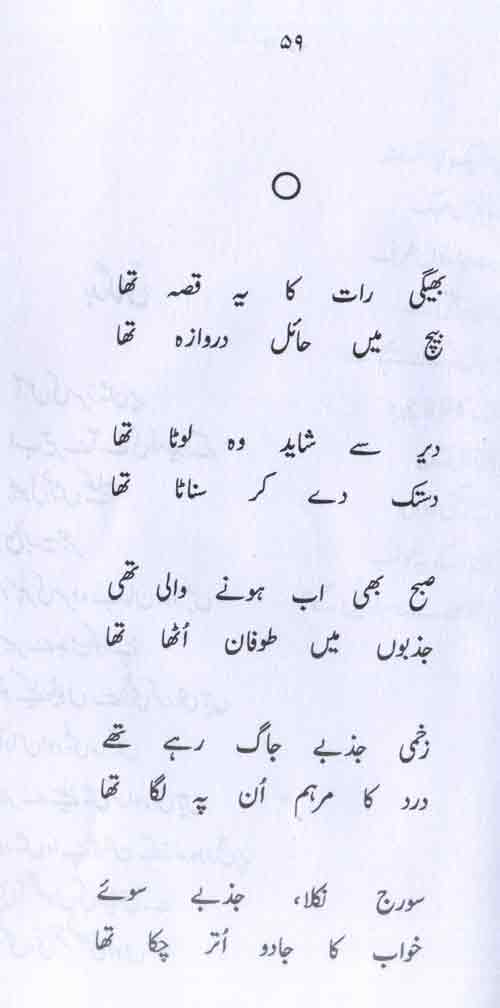 ۵۹
بھیگی رات کا یہ قصہ تھا
بیچ میں حائل دروازہ تھا
دیر سے شاید وہ لوٹا تھا
دستک دے کر سناٹا تھا
صبح بھی اب ہونے والی تھی
جذبوں میں طوفان اُٹھا تھا
زخمی جذبے جاگ رہے تھے
درد کا مرہم اُن پہ لگا تھا
سورج نکلا، جذبے سوئے
خواب کا جادو اُتر چکا تھا